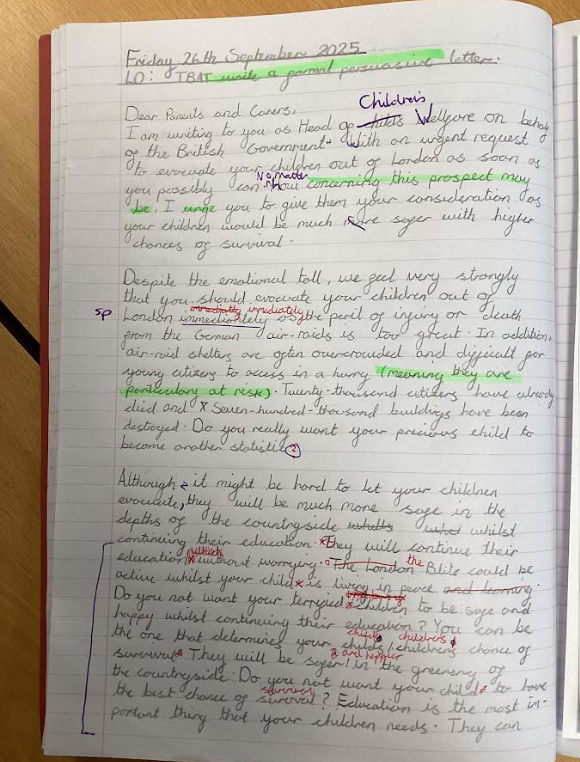 Friday 26th September 2025
LO: TBAT write a formal persuasive letter.
Children's
Dear Parents and Carers,
I am writing to you as Head of childs Welfare on behalf
of the British Government. With an urgent request
to evacuate your children out of London as soon as
No matter
you possibly can. how concerning this prospect may
be, I urge you to give them your consideration as
your children would be much more safer with higher
chances of survival.
Despite the emotional toll, we feel very strongly
that you should evacuate your children out of
immediatly immediately
sp
London immediently as the peril of injury or death
from the German air-raids is too great. In addition,
air-raid shelters are often overcrowded and difficult for
young citizens to access in a hurry (meaning they are
particulary at risk). Twenty-thousand citizens have already
died and Seven-hundred-thousand buildings have been
destroyed. Do you really want your precious child to
become another statistic?
Although it might be hard to let your children
evacuate, they will be much more safe in the
depths of the countryside whilst
continuing their education. They will continue their
education without worrying. The London the Blitz could be
active whilst your child is living in peace and learning.
Do you not want your terrified children to be safe and
happy whilst continuing their education? You can be
child's children's
the one that determines your childs/childrens chance of
and happier
survival. They will be safer in the greenery of
the countryside. Do you not want your child to have
survival
the best chance of survival? Education is the most im-
portant thing that your children needs. They can